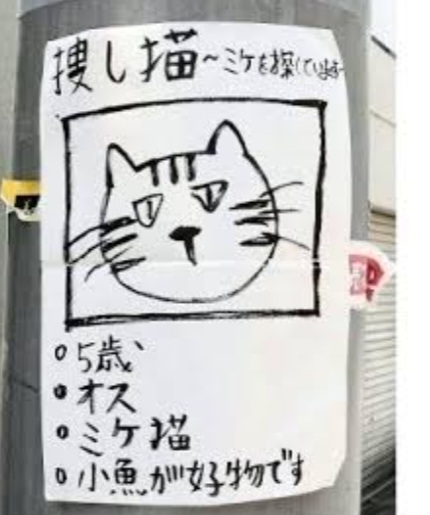 捜し描~ミケを探しています~
5歳
オス
ミケ描
小魚が好物です